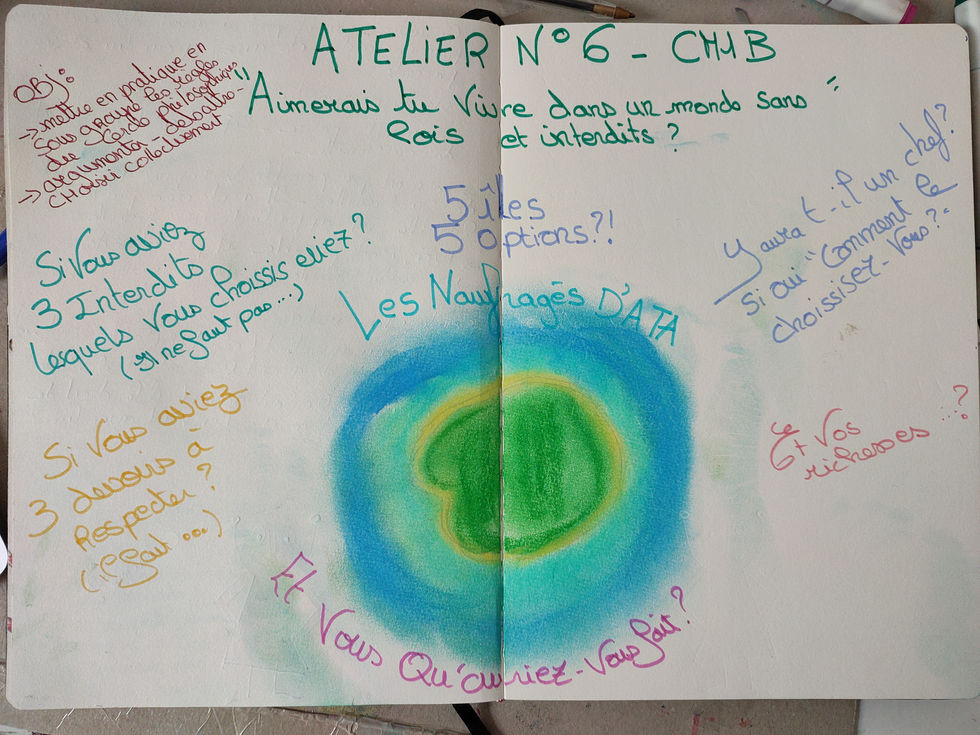 ATELIER N° 6 - CM1B
"Aimerais tu Vivre dans un monde sans
lois et interdits ? "
OBJ:
-> mettre en pratique en
sous groupe les règles
du Cercle philosophique
-> argumenter débattre -
CHOISIR Collectivement
5 îles
5 options?!
Les Naufragés D'ATA
Si Vous aviez
3 Interdits
lesquels Vous choissis eriez ?
(Il ne faut pas ...)
Si Vous aviez
3 devoirs à
Respecter ?
(il faut ...)
Y aura t-il un chef?
Si oui "Comment le
choissisez-Vous?"
6+ Vos
richesses ...?
Et Vous Qu'auriez-Vous fait?